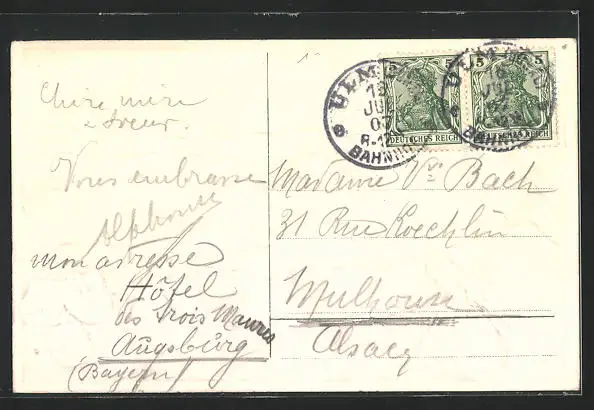 Chère mère
& soeur.
Vous embrasse
Alphonse
mon adresse
Hôtel
des trois Maures
Augsburg
(Bayern)
5 5
DEUTSCHES REICH
5
DEUTSCHES REICH
ULM
JUL
BAHNHOF
ULM
JUL
BAHNHOF
Madame Ve Bach
31 Rue Koechlin
Mulhouse
Alsace